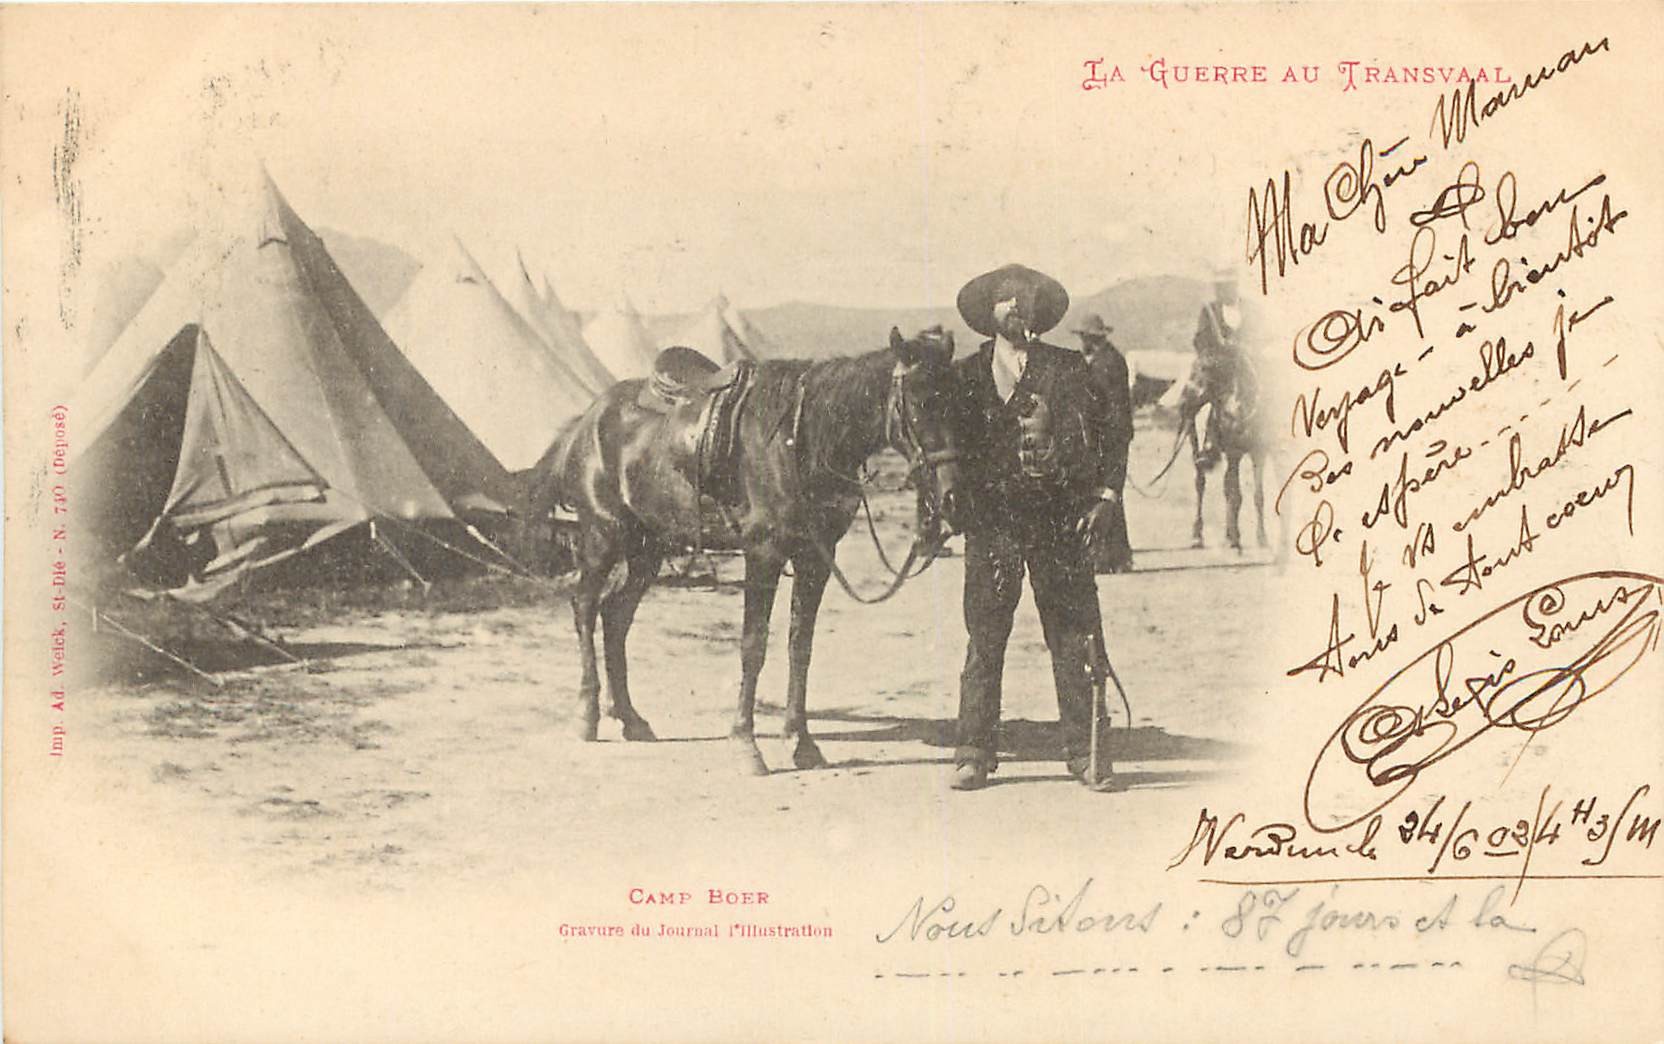 LA GUERRE AU TRANSVAAL
Ma Chère Maman
Ai fait bon
Voyage - à bientôt
Des nouvelles je
l'espère - - - - - -
Je vs embrasse
Tous de Tout coeur
Alexis Louis
Verdun le 24/6 02/4 H 3/m
Imp. Ad. Weick, St-Dié - N. 740 (Déposé)
CAMP BOER
Gravure du Journal l'Illustration
Nous Sitons : 87 jours et la